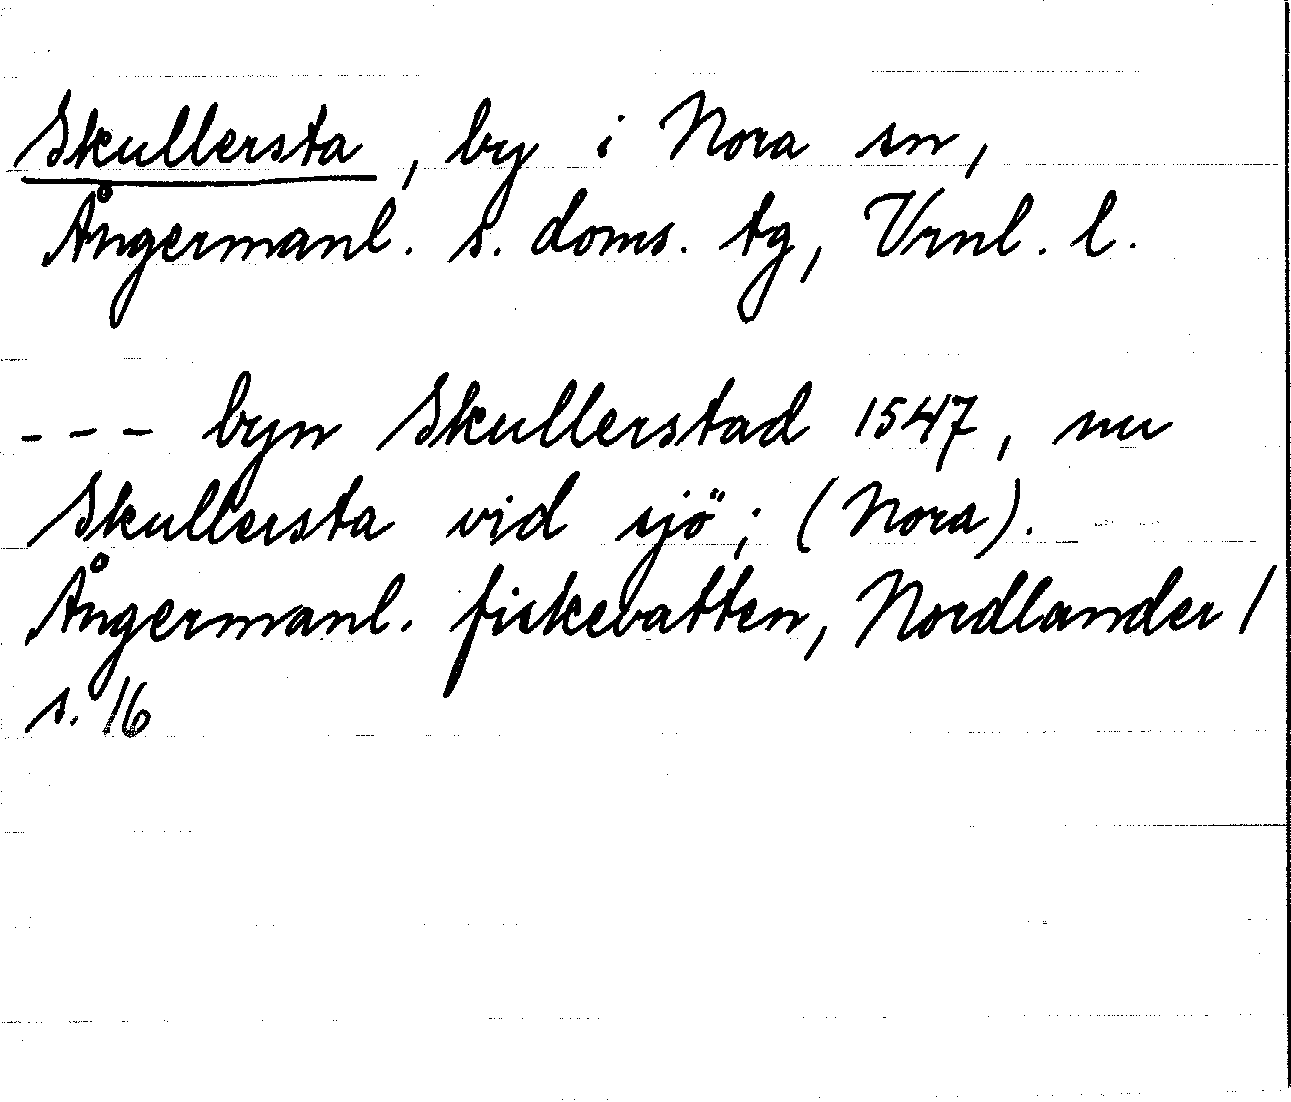 Skullersta, by i Nora sn,
Ångermanl. s. doms. tg, Vrnl. l.
--- byn Skullerstad 1547, nu
Skullersta vid sjö; (Nora).
Ångermanl. fiskevatten, Nordlander /
s. 16